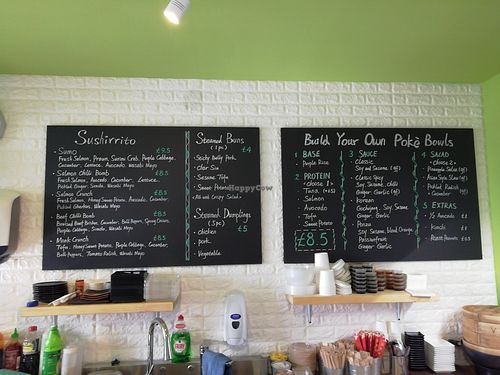 Sushirrito
- Sumo £9.5
Fresh Salmon, Prawn, Surimi Crab, Purple Cabbage,
Cucumber, Lettuce, Avocado, Wasabi Mayo
- Salmon Chilli Bomb £8.5
Fresh Salmon, Avocado, Cucumber, Lettuce,
Pickled Ginger, Sriracha, Wasabi Mayo
- Salmon Crunch £8.5
Fresh Salmon, Honey Sweet Potato, Avocado, Cucumber,
Pickled Wasabi Mayo
- Beef Chilli Bomb £8.5
Beef, Cucumber, Bell Peppers, Spring Onions,
Purple Cabbage, Wasabi Mayo
- Monk Crunch £8.5
Tofu, Honey Sweet Potato, Purple Cabbage, Cucumber,
Bell Peppers, Wasabi Mayo
Steamed Buns
(1 pc) £4
- Sticky Belly Pork
- Char Siu
- Sesame Tofu
- Sweet Potato
Steamed Dumplings
(5pc) £5
- chicken
- pork
- Vegetable
Build Your Own Pokè Bowls
1 BASE
- Purple Rice
2 PROTEIN
- choose 1 >
- Tuna (+0.5)
- Salmon
- Avocado
- Tofu
- Sweet Potato
£8.5
3 SAUCE
- Classic
Soy and Sesame (gf)
- Classic Spicy
Soy, Sesame, chilli
Ginger, Garlic (gf)
- Korean
Gochujang, Soy, Sesame,
Ginger, Garlic
- Ponzu
Soy, Sesame, blood Orange,
Passionfruit
Ginger, Garlic
4 SALAD
- choose 2 >
- Pineapple Salsa (gf)
- Asian Style Slaw (gf)
- Pickled Radish
+ Cucumber (gf)
5 EXTRAS
- 1/2 Avocado £2
- Kimchi £1
- Roast Peanuts £0.5
HappyCow
FAIRY